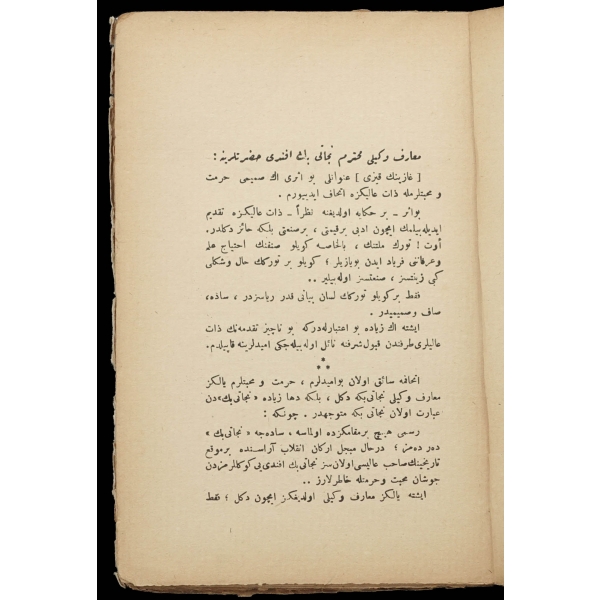 معارف وكیلی محترم نجاتی بك افندی حضرتلرینه :
[ غازینك قیزی ] عنوانلی بو اثری اك صمیمی حرمت
و محبتلرمله ذات عالیكزه اتحاف ایدییورم .
بواثر ـ بر حكایه اولدیغنه نظراً ـ ذات عالیكزه تقدیم
ایدیله‌بیلمك ایچون ادبی برقیمتی ، برصنعتی بلكه حائز دكلدر.
اوت ! تورك ملتنك ، بالخاصه كویلو صنفنك احتیاج علم
وعرفاننی فریاد ایدن بویازیلر ؛ كویلو بر توركك حال وشكلی
كبی زینتسز ، صنعتسز اوله‌بیلیر ..
فقط بركویلو توركك لسان بیانی قدر ریاسزدر ، ساده،
صاف وصمیمیدر .
ایشته اك زیاده بو اعتبارله‌دركه بو ناچیز تقدمه‌نك ذات
عالیلری طرفندن قبول شرفنه نائل اوله‌بیله‌جكی امیدلرینه قاپیلدم.
*
* *
اتحافه سائق اولان بوامیدلرم ، حرمت و محبتلرم یالكز
معارف وكیلی نجاتی‌بكه دكل ، بلكه دها زیاده « نجاتی بك »دن
عبارت اولان نجاتی بكه متوجهدر. چونكه :
رسمی هیچ برمقامكزده اولماسه ، ساده‌جه « نجاتی‌بك »
ده‌ر ده‌مز ؛ درحال مبجل اركان انقلاب آراسنده برموقع
تاریخینك صاحب عالیسی اولان‌سز نجاتی‌بك افندی‌یی كوكللرمزدن
جوشان محبت وحرمتله خاطرلارز ..
ایشته یالكز معارف وكیلی اولدیغكز ایچون دكل ؛ فقط